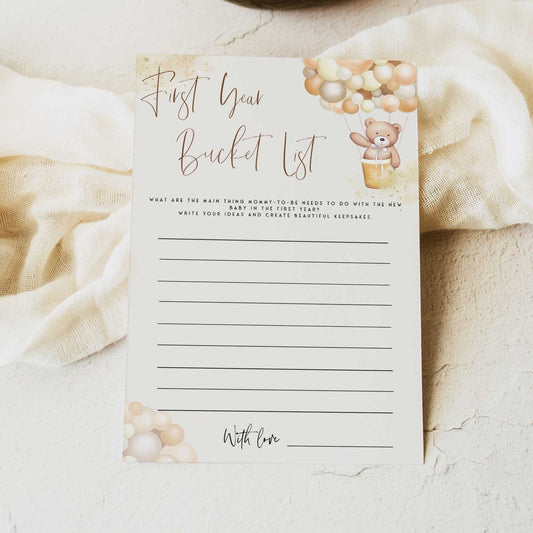 First Year
Bucket List
WHAT ARE THE MAIN THING MOMMY-TO-BE NEEDS TO DO WITH THE NEW
BABY IN THE FIRST YEAR?
WRITE YOUR IDEAS AND CREATE BEAUTIFUL KEEPSAKES.
With love